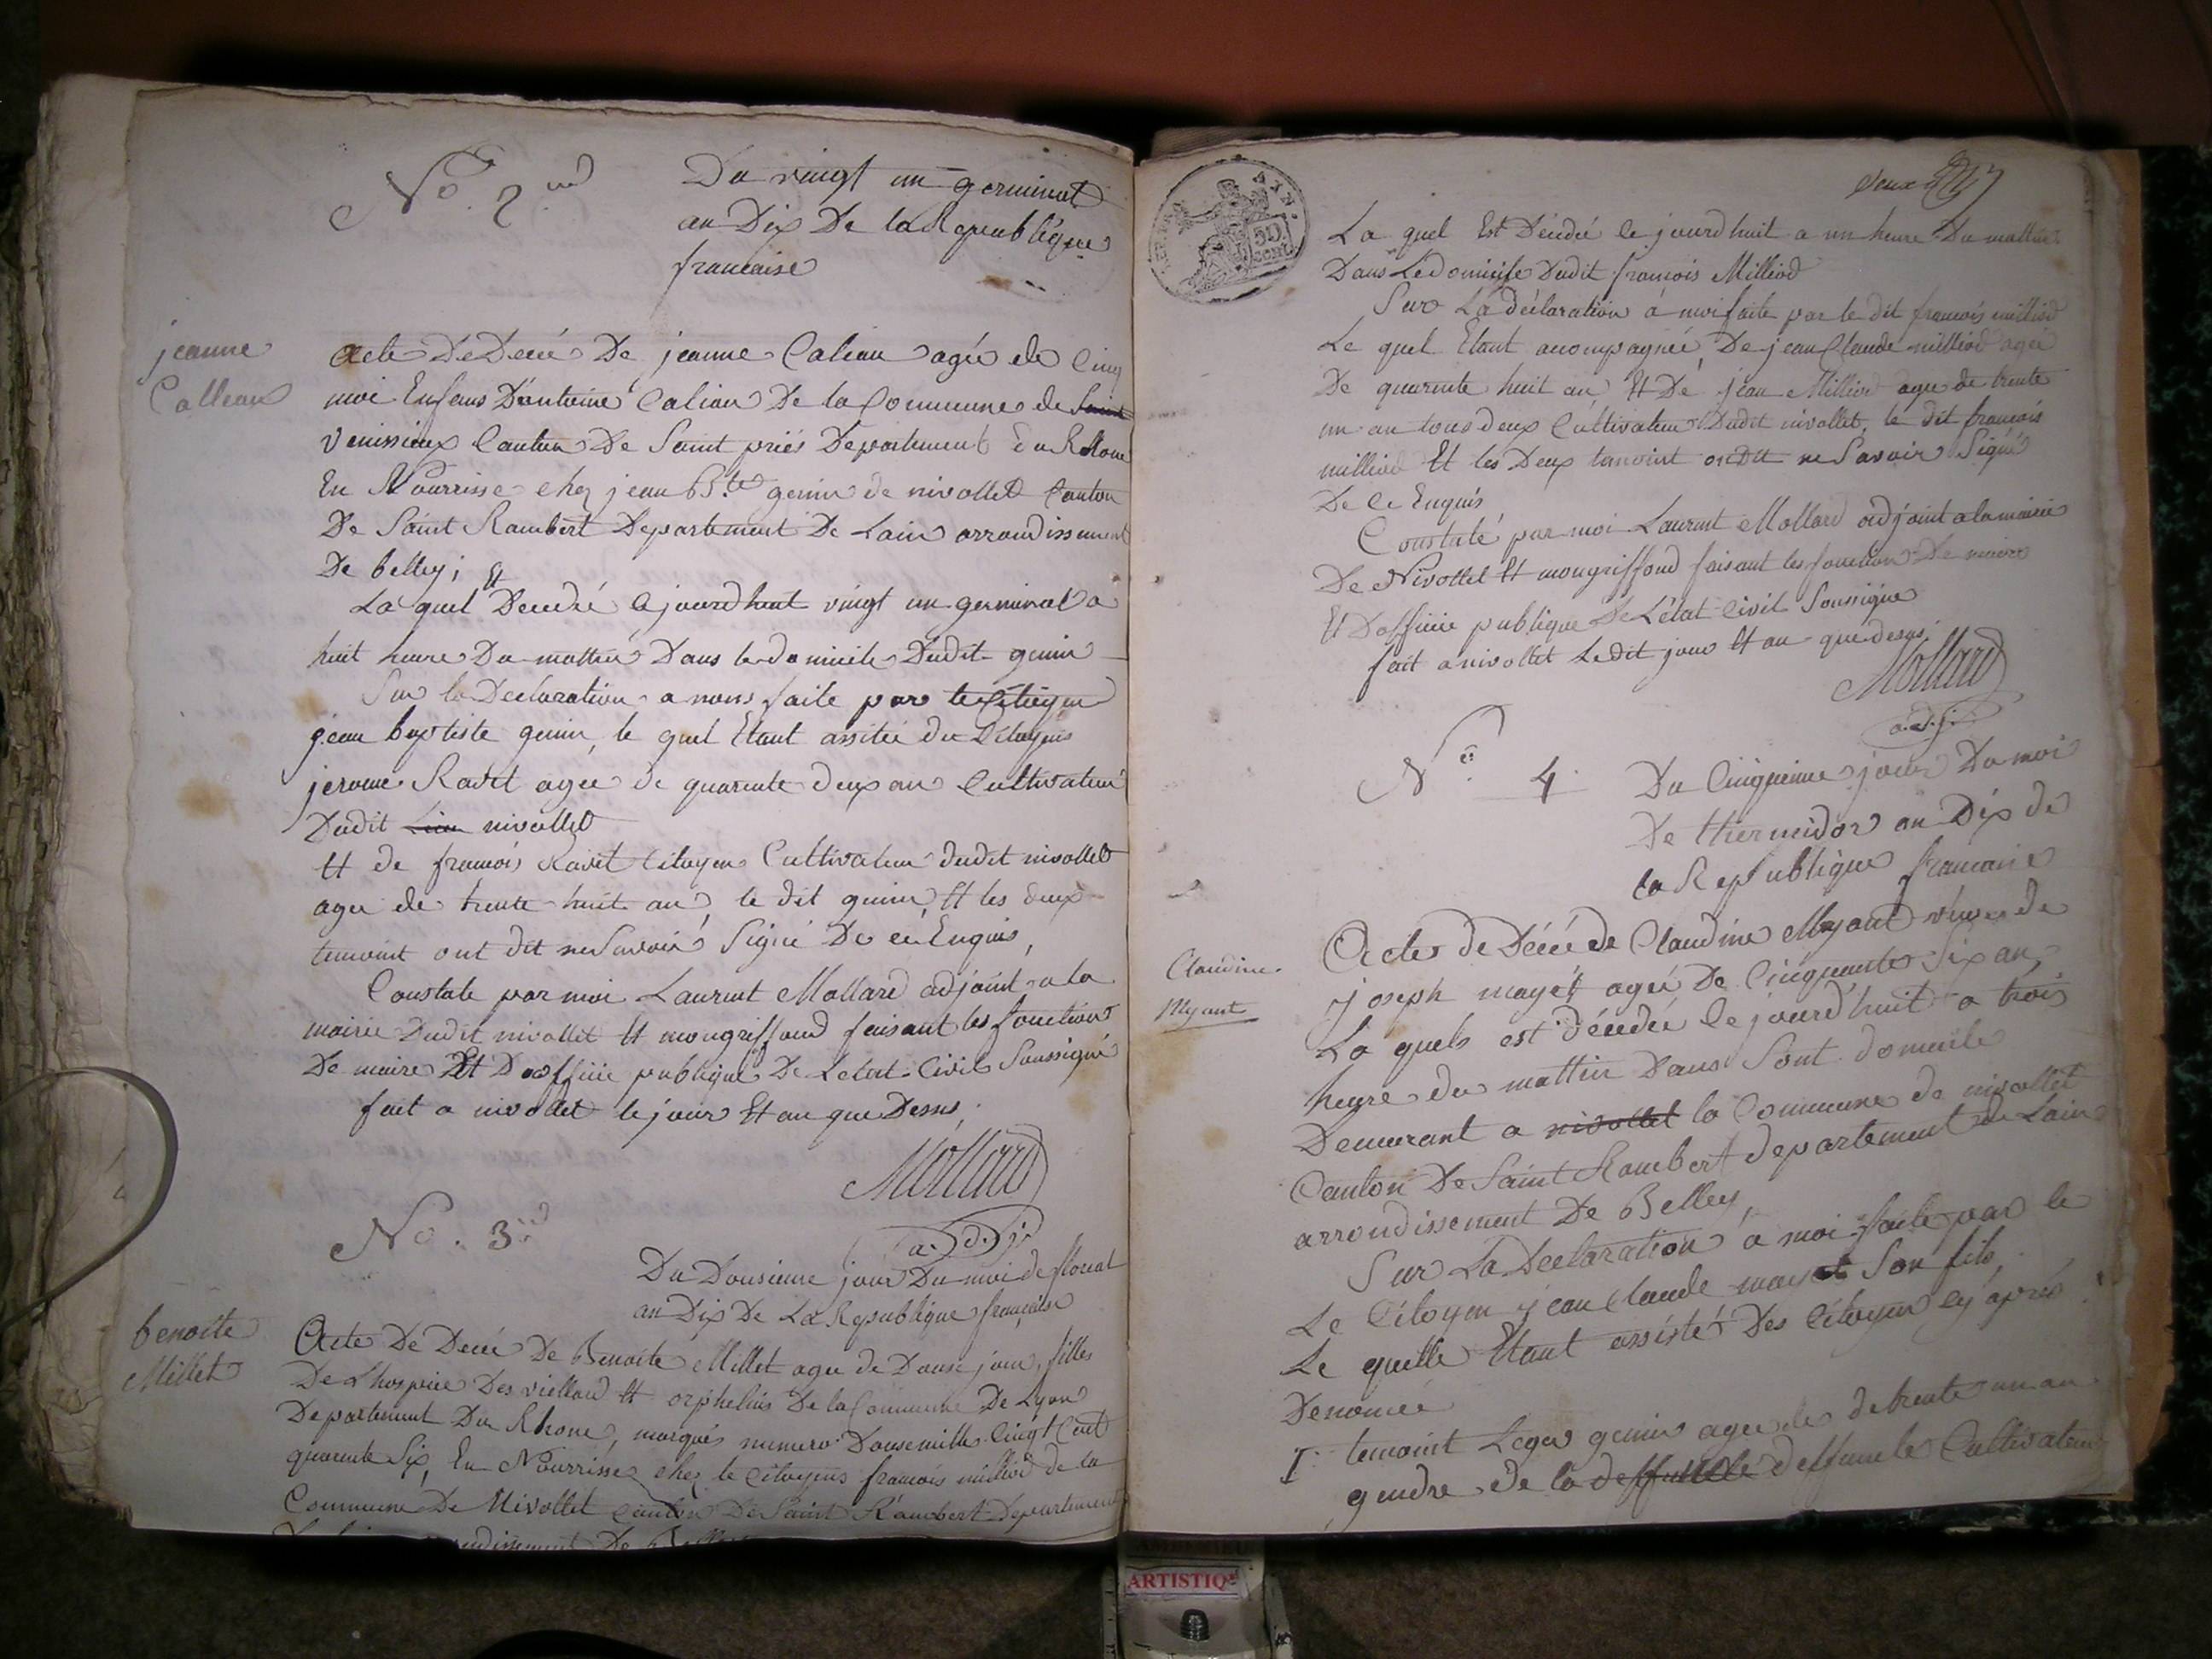 No. 2.nd
Du vingt un germinal
an Dix De la Republique
francaise
jeanne
Calleau
Acte De Decé De jeanne Caleau agée de Cinq
moi Enfans D'antoine Calian De la Commune de Saint
Venissieux Canton De Saint priés Departement Du Rhone
En Nourrisse chez jean B.te genin de nivollet Canton
De Saint Rambert Departement De Lain arrondissement
De belley; Et
La quel Decedré lejourdhuit vingt un germinal a
huit heure Du mattin Dans le domicile Dudit genin
Sur la Declaration a nous faite par le Citoyen
jean baptiste genin, le quel Etant assitée du Citoyens
jerome Ravet agée de quarente deux an Cultivateur
Dudit Lieu nivollet
Et de francois Ravet Citoyen Cultivateur dudit nivollet
agee de trente huit an, le dit genin, Et les deux
temoint ont dit ne Savoir Signé De ce Enquis,
Constate par moi Laurent Mollard adjoint a la
mairie Dudit nivollet Et mongriffond faisant les fonction
De maire Et D officie publique De Letat Civil Soussigné
fait a nivollet le jour Et an que Desus,
Mollard
a.d.j.
No. 3.
Du Dousieme jour Du moi de floreal
an Dix De La Republique française
benoite
Millet
Acte De Decé De Benoite Millet agee de Douse jour, filles
De Lhospice Des viellard Et orphelins De la Commune De Lyon
Departement Du Rhone, marqués numero Dousemille Cinqt Cent
quarente Six, En Nourrisse chez le Citoyens francois milliod de la
Commune De Nivollet Canton De Saint Rambert Departement
De Belley
deux
AIN.
50
cent.
La quel Est Décédé le jourdhuit a un heure Du mattin
Dans Le Domicile Dudit françois Milliod
Sur La déclaration à moi faite par le dit francois milliod
Le quel Etant acompagnée, De jean Claude milliod agée
De quarente huit an Et De jean Milliod agee de trente
un an tous deux Cultivateur Dudit nivollet, le dit francois
milliod Et les Deux temoint on Dit ne Savoir Signé
De Ce Enquis
Constaté par moi Laurent Mollard adjoint a la mairie
De Nivollet Et mongriffond faisant les fonction De maire
Et D officie publique De L'état Civil Soussigné
fait a nivollet Ledit jour Et an que desus,
Mollard
a.d.j.
No. 4.
Du Cinquieme jour Du moi
De thermidor an Dix de
la Republique francaise
Claudine
Myant
Acte de Décé de Claudine Myant veuve de
joseph mayét agée De Cinquante Six an,
La quels est décédée le jourd'huit a trois
heure du mattin Dans Sont domicile
Demeurant a nivollet la Commune de nivollet
Canton De Saint Rambert departement de Lain
arrondissement De Belley,
Sur La Declaration a moi faite par le
Le Citoyen jean Claude mayet Son fils,
Le quelle Etant assisté Des Citoyen cy après
Denomée
1. temoint Leger genin agee de de trente un an
gendre de la deffunte deffunte Cultivateur
ARTISTIQ